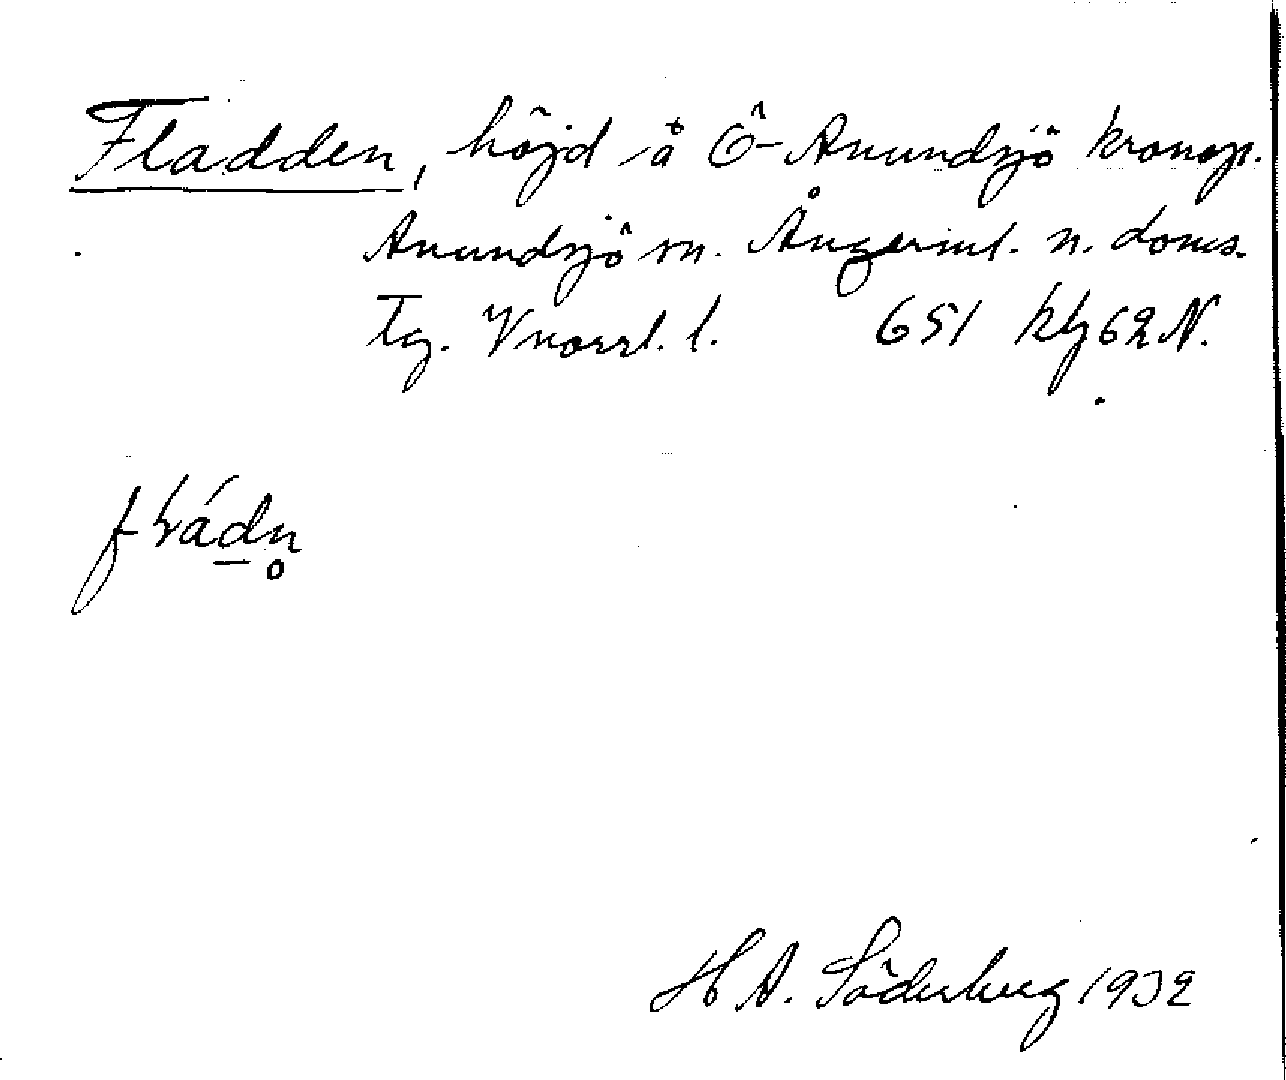 Fladden, höjd å Ö-Anundsjö kronop.
Anundsjö sn. Ångerml. n. doms.
Tg. V norrl. l. 651 kbl 62 N.
H A. Söderberg 1932